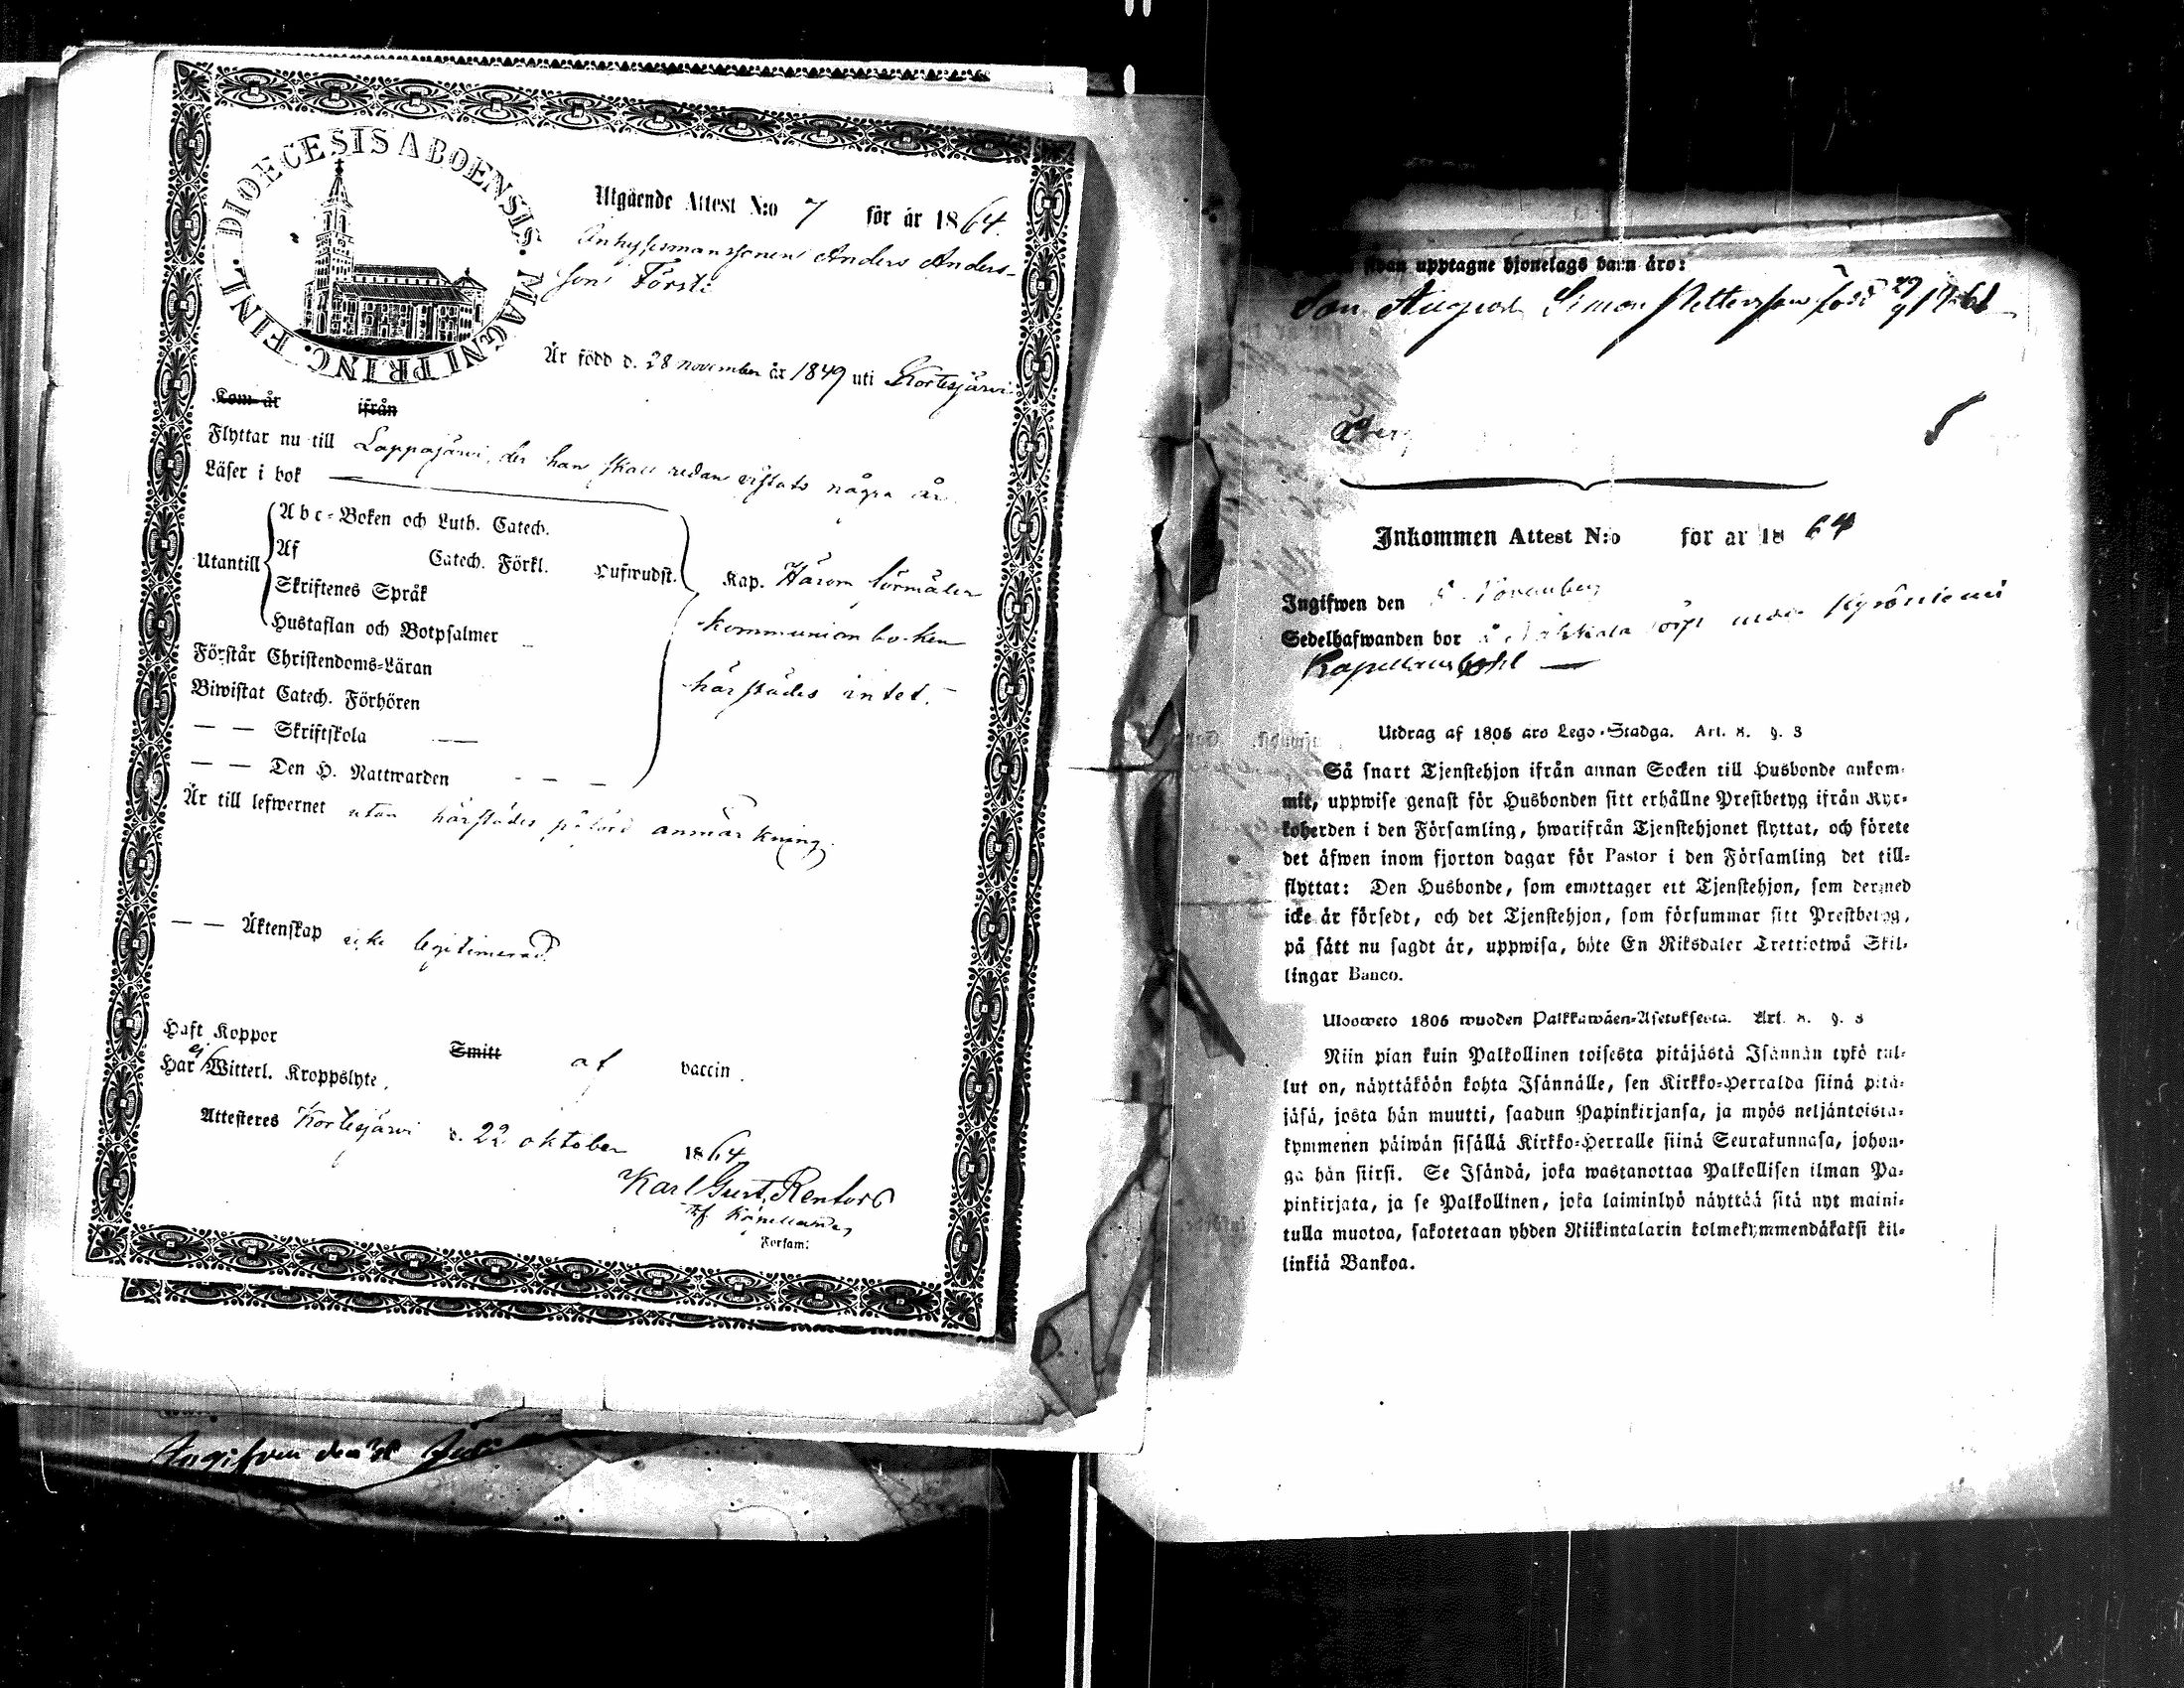 DIOECESIS ABOENSIS. MAGNI PRINC. FINL.
Utgående Attest N:o 7 för år 1864.
Inhysesmanssonen Anders Anders-
son Försti
Är född d. 28 november år 1849 uti Kortesjärvi
Kom år ifrån
Flyttar nu till Lappajärvi, der han skall redan vistats några år.
Läser i bok
Utantill
Abc-Boken och Luth. Catech.
Af Catech. Förkl. Kap. Härom förmäler
Skriftenes Språk
Hustaflan och Botpsalmer
kommunionboken
Förstår Christendoms-Läran
härstädes intet.
Biwistat Catech. Förhören
— — Skriftskola
— — Den H. Nattwarden
Är till lefwernet utan härstädes påförd anmärkning.
— — Äktenskap icke legitimerad.
Haft Koppor Smitt af vaccin.
Har ej Witterl. Kroppslyte.
Attesteras Kortesjärvi d. 22 oktober 1864
Karl Gust. Rentors
Försam:
Angifven den Juli
upptagne hjonelags barn äro:
Son August Simon Pettersson född
Inkommen Attest N:o för år 1864
Ingifwen den November
Sedelhafwanden bor å
Utdrag af 1805 års Lego-Stadga. Art. 8. §. 3
Så snart Tjenstehjon ifrån annan Socken till Husbonde ankom-
mit, uppwise genast för Husbonden sitt erhållne Prestbetyg ifrån Kyr-
koherden i den Församling, hwarifrån Tjenstehjonet flyttat, och förete
det äfwen inom fjorton dagar för Pastor i den Församling det till-
flyttat: Den Husbonde, som emottager ett Tjenstehjon, som dermed
icke är försedt, och det Tjenstehjon, som försummar sitt Prestbetyg,
på sätt nu sagdt är, uppwisa, böte En Riksdaler Trettiotwå Skil-
lingar Banco.
Ulosweto 1805 wuoden Palkkawäen-Asetuksesta. Art. 8. §. 3
Niin pian kuin Palkollinen toisesta pitäjästä Isännän tykö tul-
lut on, näyttäköön kohta Isännälle, sen Kirkko-Herralda siinä pitä-
jäsä, josta hän muutti, saadun Papinkirjansa, ja myös neljäntoista-
kymmenen päiwän sisällä Kirkko-Herralle siinä Seurakunnasa, johon-
ga hän siirsi. Se Isändä, joka wastanottaa Palkollisen ilman Pa-
pinkirjata, ja se Palkollinen, joka laiminlyö näyttää sitä nyt maini-
tulla muotoa, sakotetaan yhden Riikintalarin kolmekymmendäkaksi kil-
linkiä Bankoa.